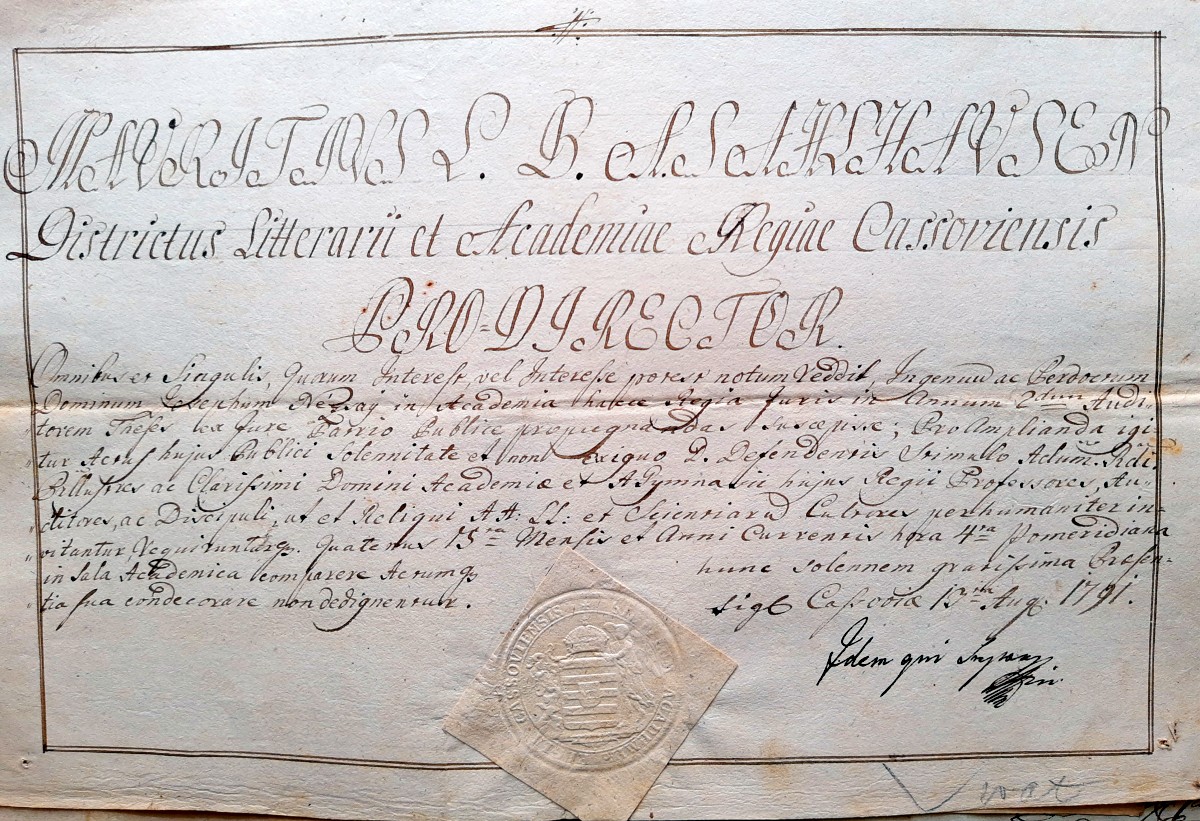 MAVRITIVS L. B. A SAHLHAVSEN
Districtus Litterarii et Academiae Regiae Cassoviensis
PRO=DIRECTOR.
Omnibus et Singulis, Quorum Interest, vel Interesse potest notum reddit, Ingenuum ac Perdoctum
Dominum Josephum in Academia hacce Regia Juris in Annum 2dum Audi„
„torem Theses ex Jure Patrio Publice propugnandas suscepisse; Pro Amplianda igi„
„tur Actus hujus Publici Solemnitate et non exiguo D. Defendentis Stimulo
Perillustres ac Clarissimi Domini Academiæ et AGymnasii hujus Regii Professores, Au„
„ditores, ac Discipuli, ut et Reliqui AA: LL: et Scientiarum Cultores perhumaniter in„
„vitantur requirunturq. Quatenus 15ta Mensis et Anni Currentis hora 4ta Pomeridiana
in Sala Academica comparere Actumq hunc solennem gratissima Præsen„
„tia sua condecorare non dedignentur. Sigl Cassoviæ 13tia Aug. 1791.
Idem qui Supra
CASSOVIENSIS